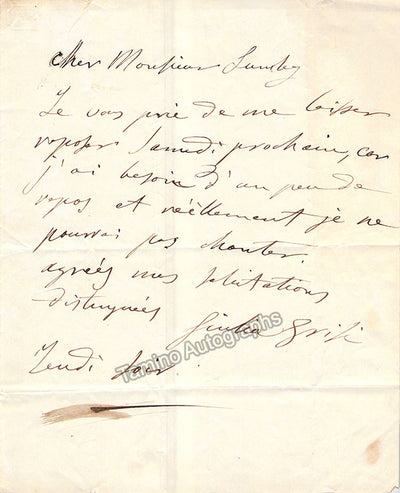 cher Monsieur Lumley
Je vous prie de me laisser
reposer Samedi prochain, car
j'ai besoin d'un peu de
repos et réellement je ne
pourrai pas chanter.
agréés mes salutations
distinguées
Giulia Grisi
Jeudi soir.
Tamino Autographs